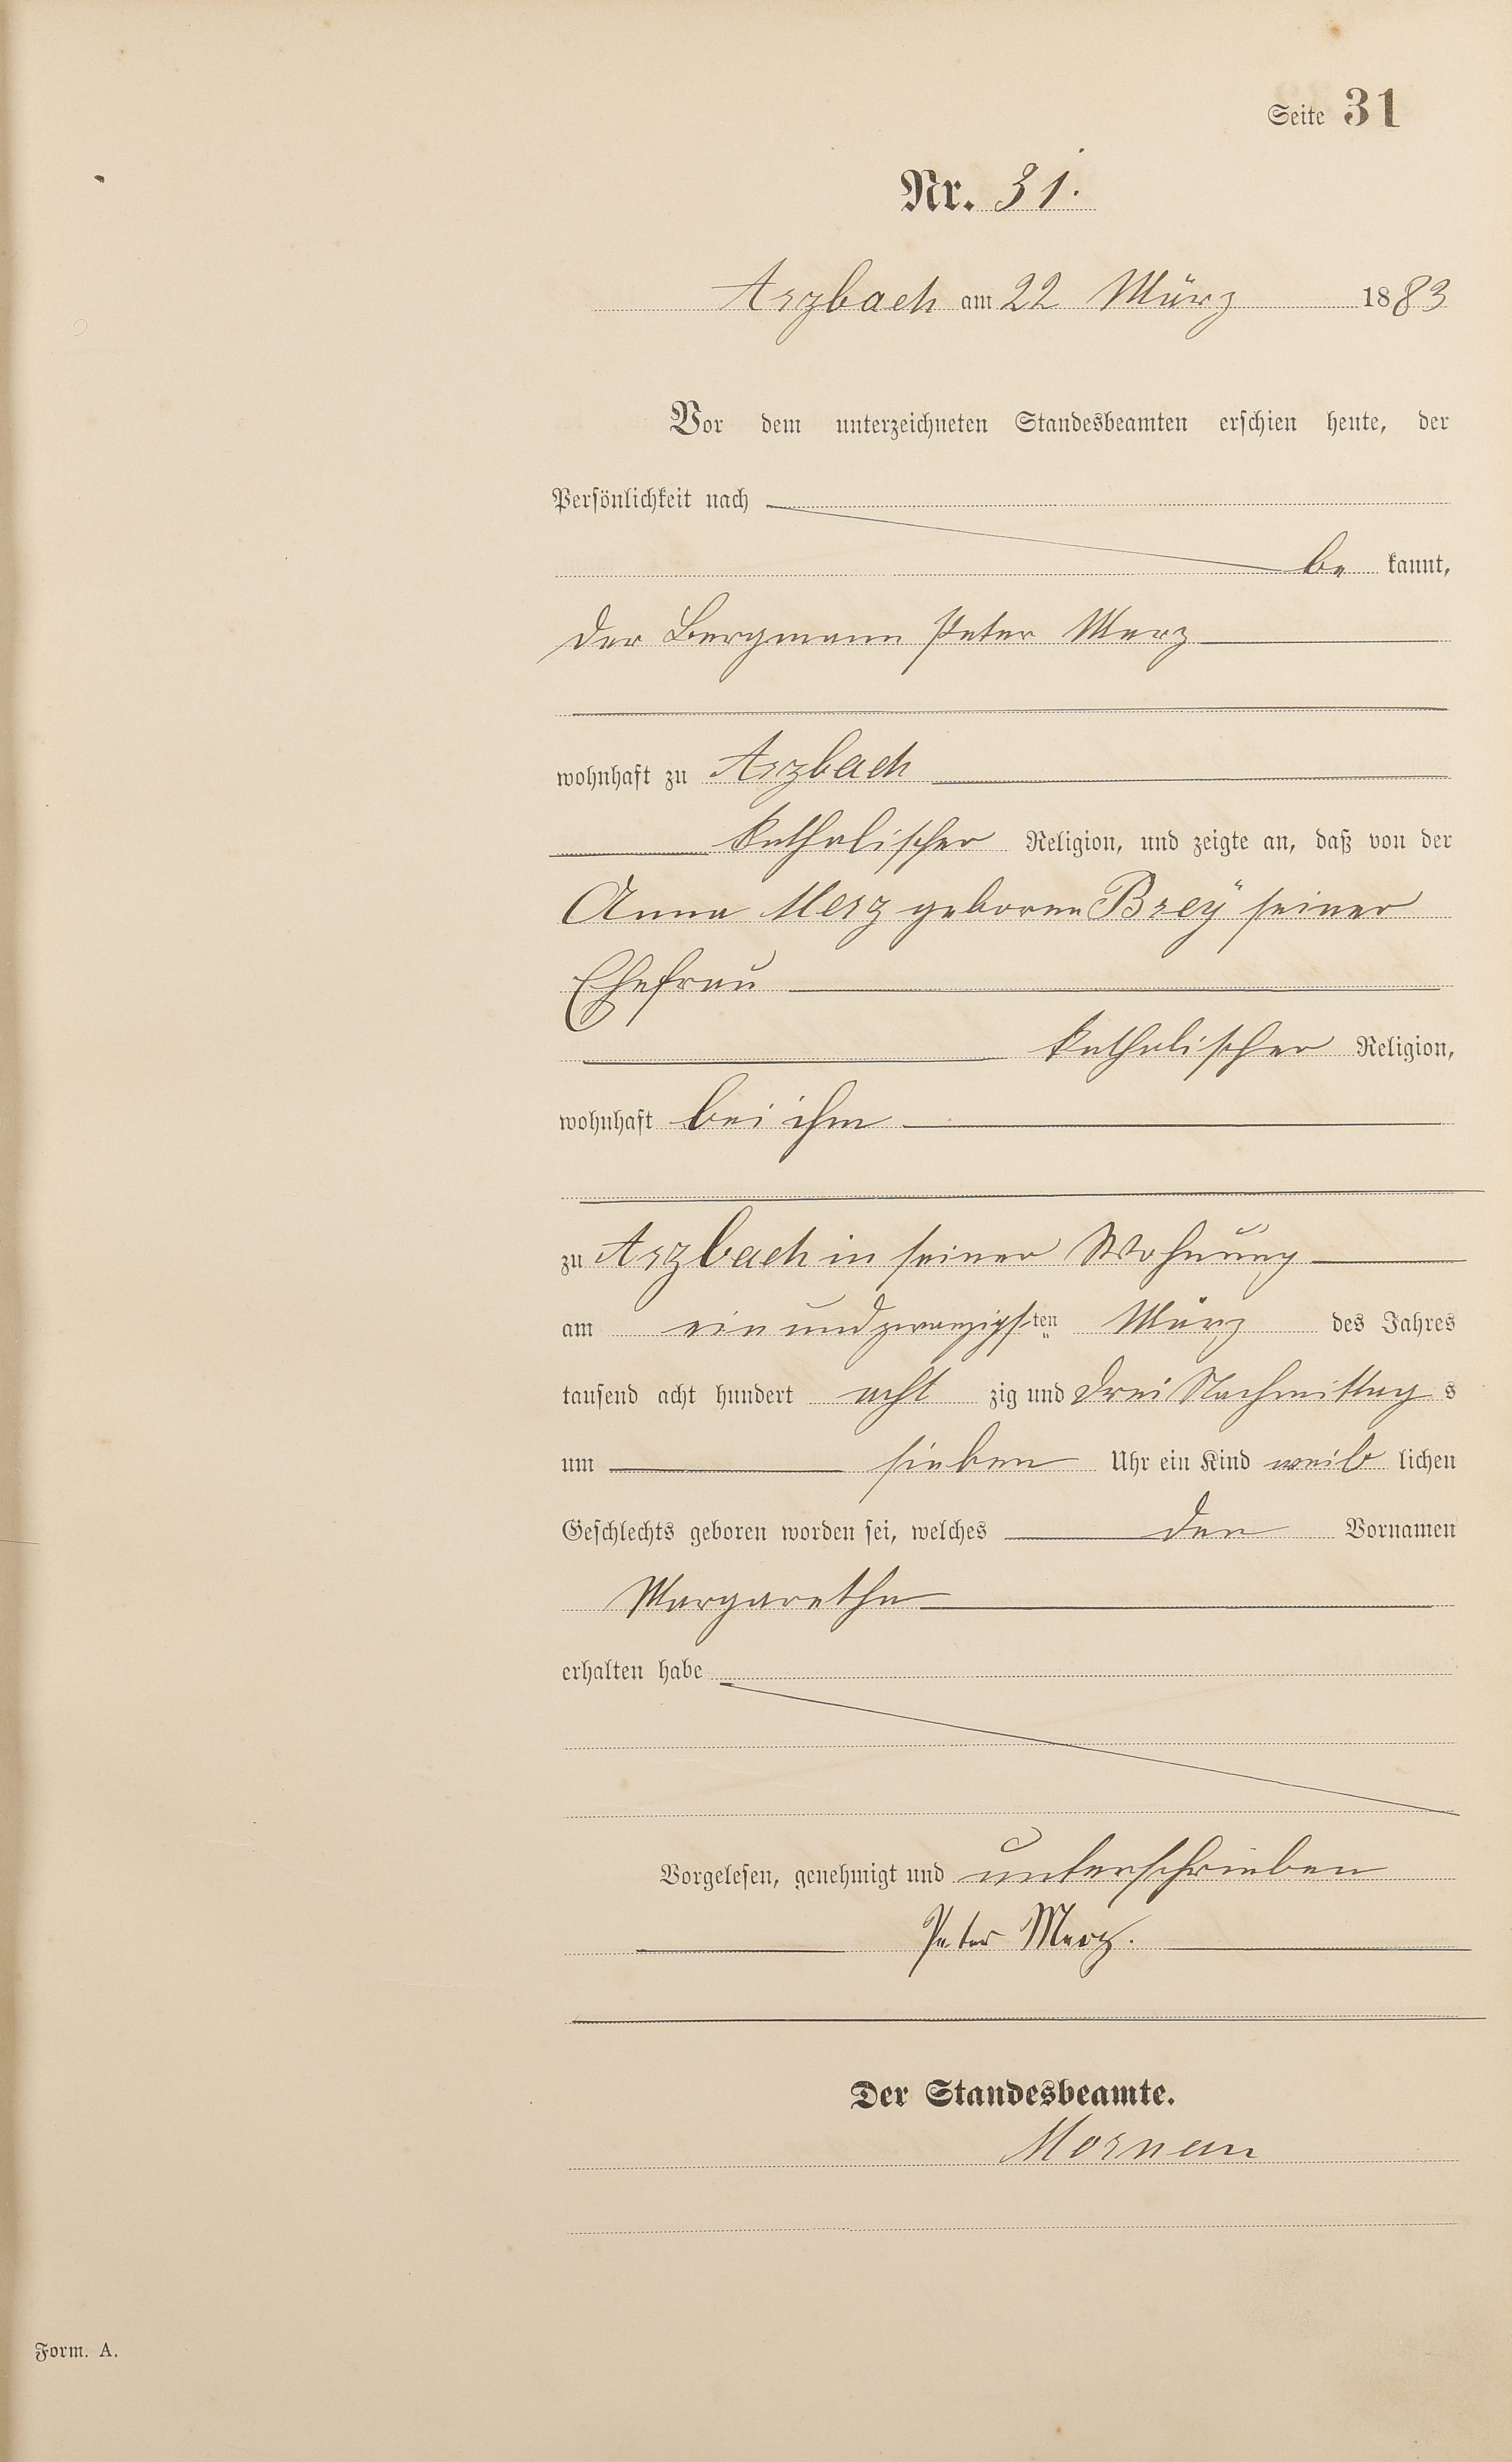 Seite 31
Nr. 31.
Arzbach am 22 März 1883
Vor dem unterzeichneten Standesbeamten erschien heute, der
Persönlichkeit nach
be kannt,
der Bergmann Peter Merz
wohnhaft zu Arzbach
katholischer Religion, und zeigte an, daß von der
Anna Merz geborne Breÿ seiner
Ehefrau
katholischer Religion,
wohnhaft bei ihm
zu Arzbach in seiner Wohnung
am ein und zwanzigsten März des Jahres
tausend acht hundert acht zig und drei Nachmittag s
um sieben Uhr ein Kind weib lichen
Geschlechts geboren worden sei, welches den Vornamen
Margaretha
erhalten habe
Vorgelesen, genehmigt und unterschrieben
Peter Merz.
Der Standesbeamte.
Form. A.